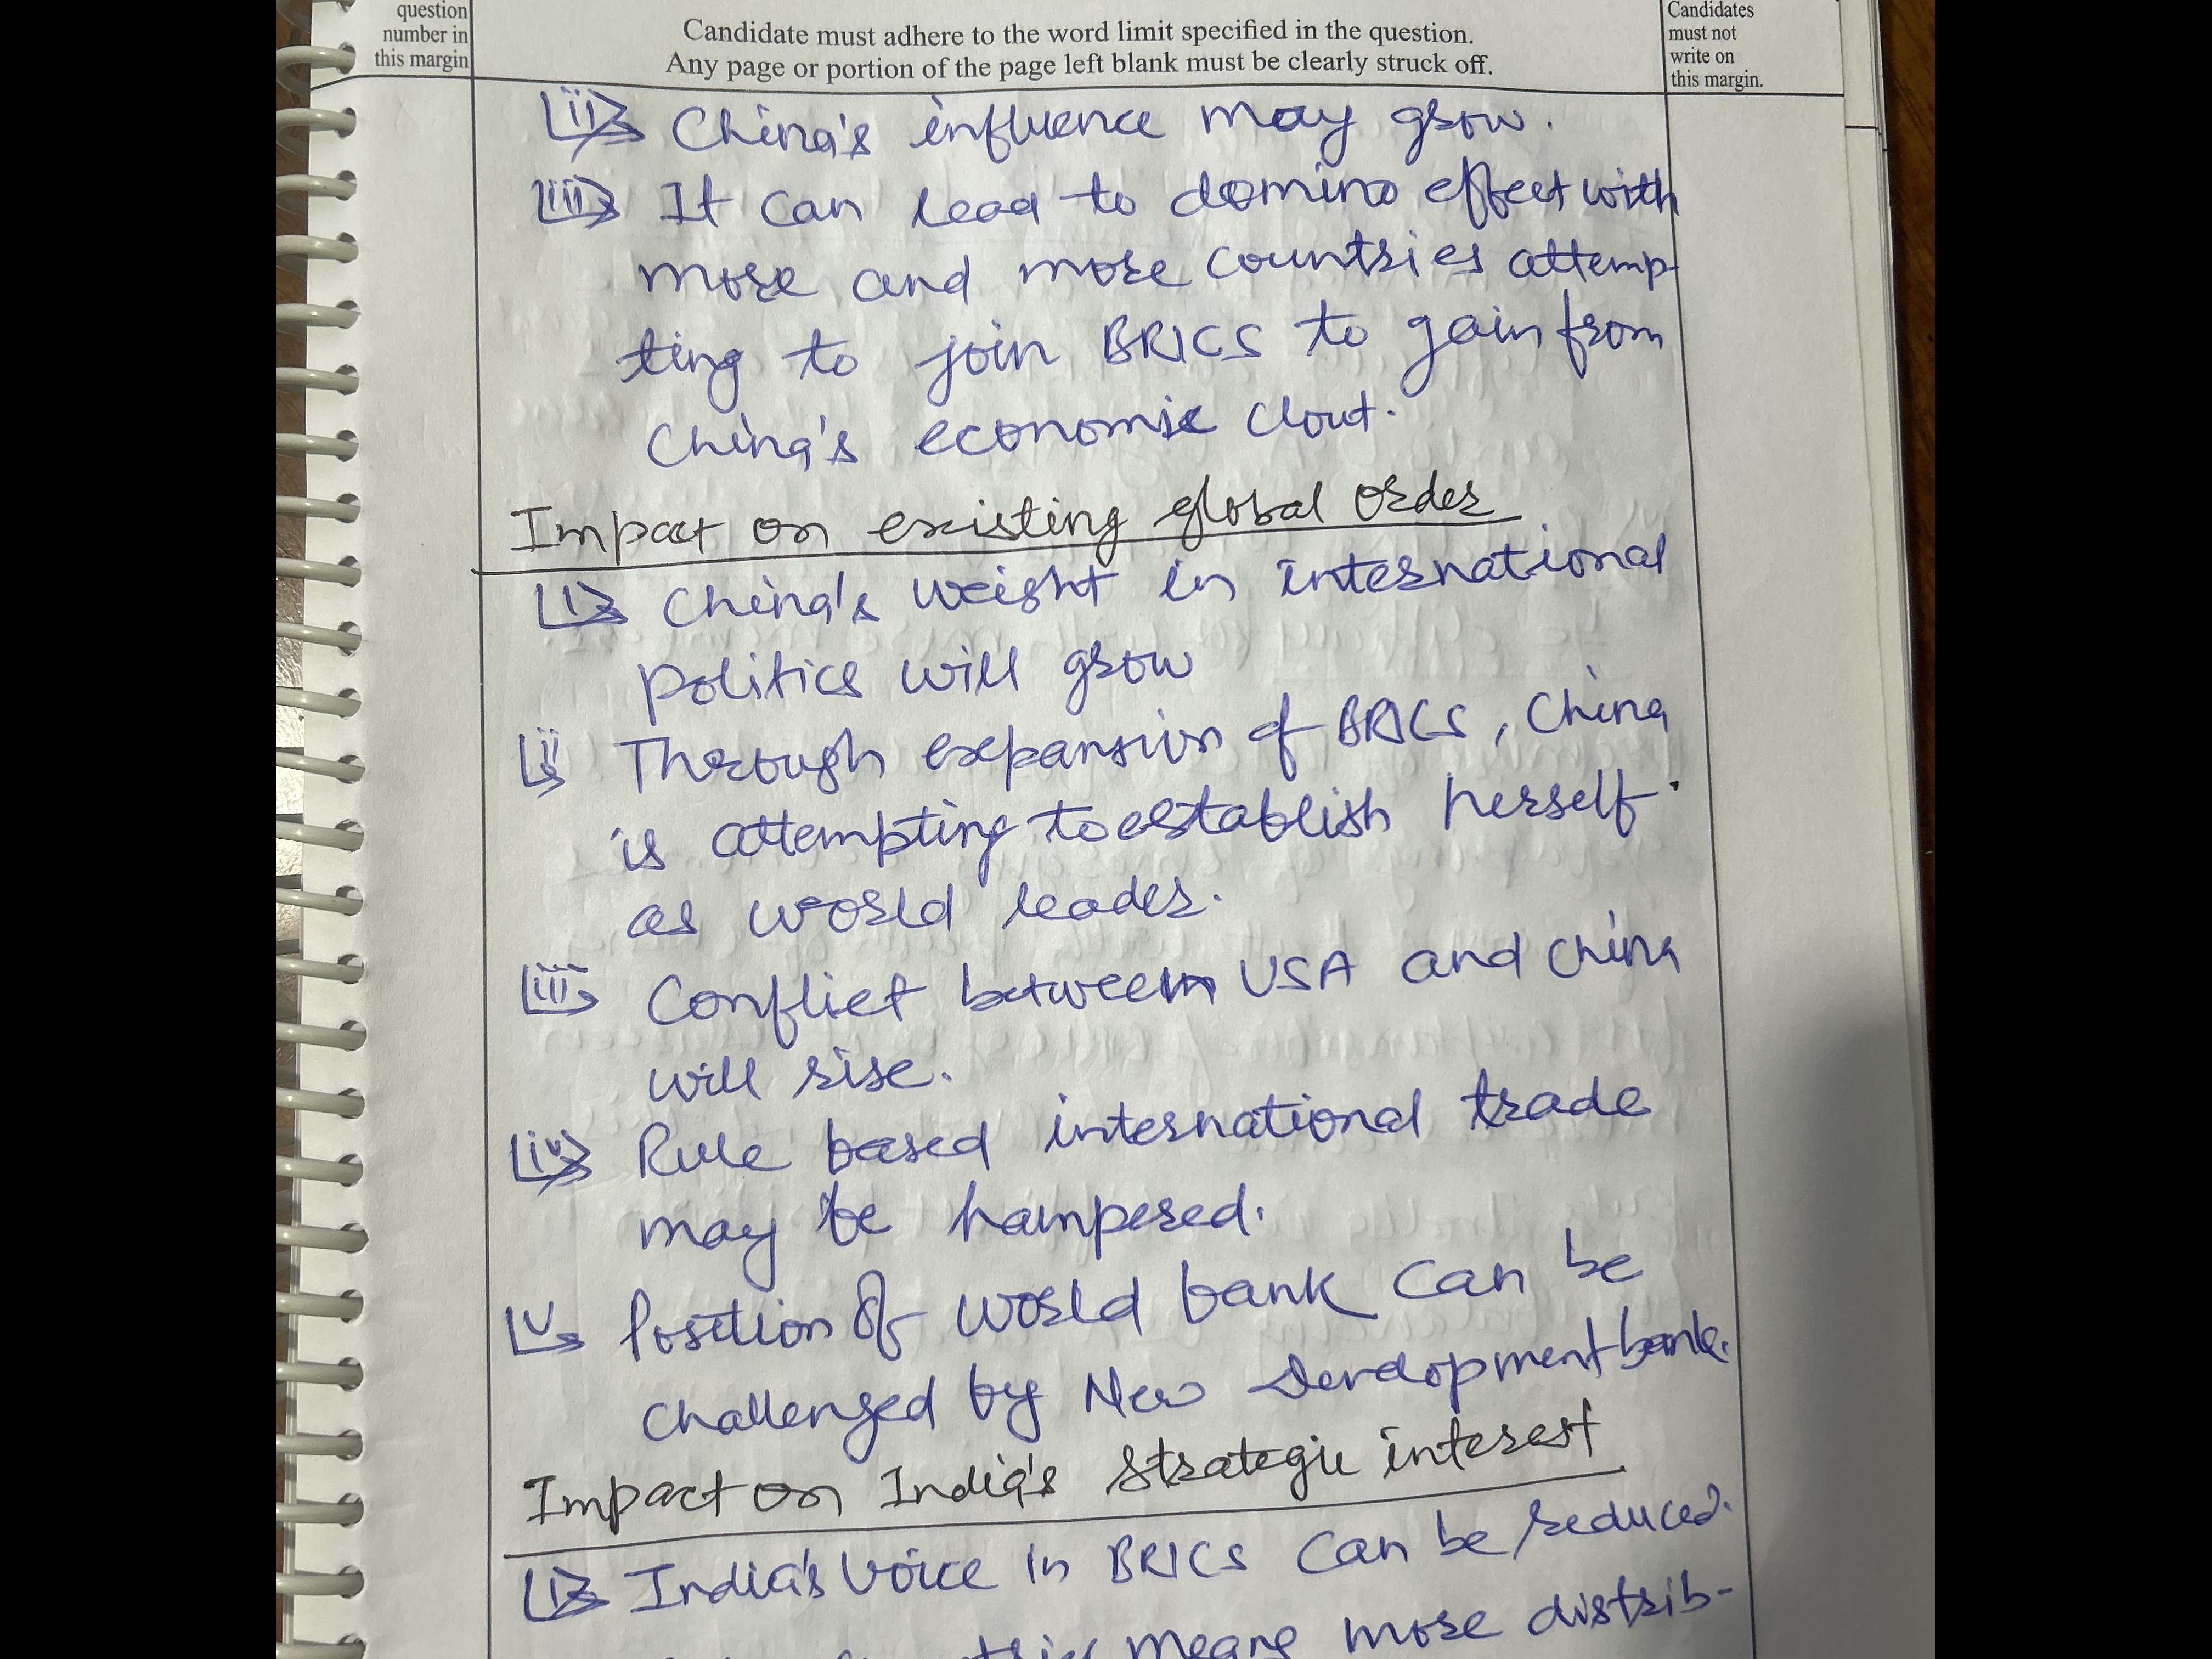 question
number in
this margin
Candidate must adhere to the word limit specified in the question.
Any page or portion of the page left blank must be clearly struck off.
Candidates
must not
write on
this margin.
ii) China's influence may grow.
iii) It can lead to domino effect with
more and more countries attemp
ting to join BRICS to gain from
China's economic clout.
Impact on existing global order
i) China's weight in international
politics will grow
ii Through expansion of BRICS, China
is attempting to establish herself
as world leader.
iii Conflict between USA and China
will rise.
iv) Rule based international trade
may be hampered.
v Position of world bank can be
challenged by New Development bank.
Impact on India's strategic interest
i) India's voice in BRICS can be reduced.
means more distrib-